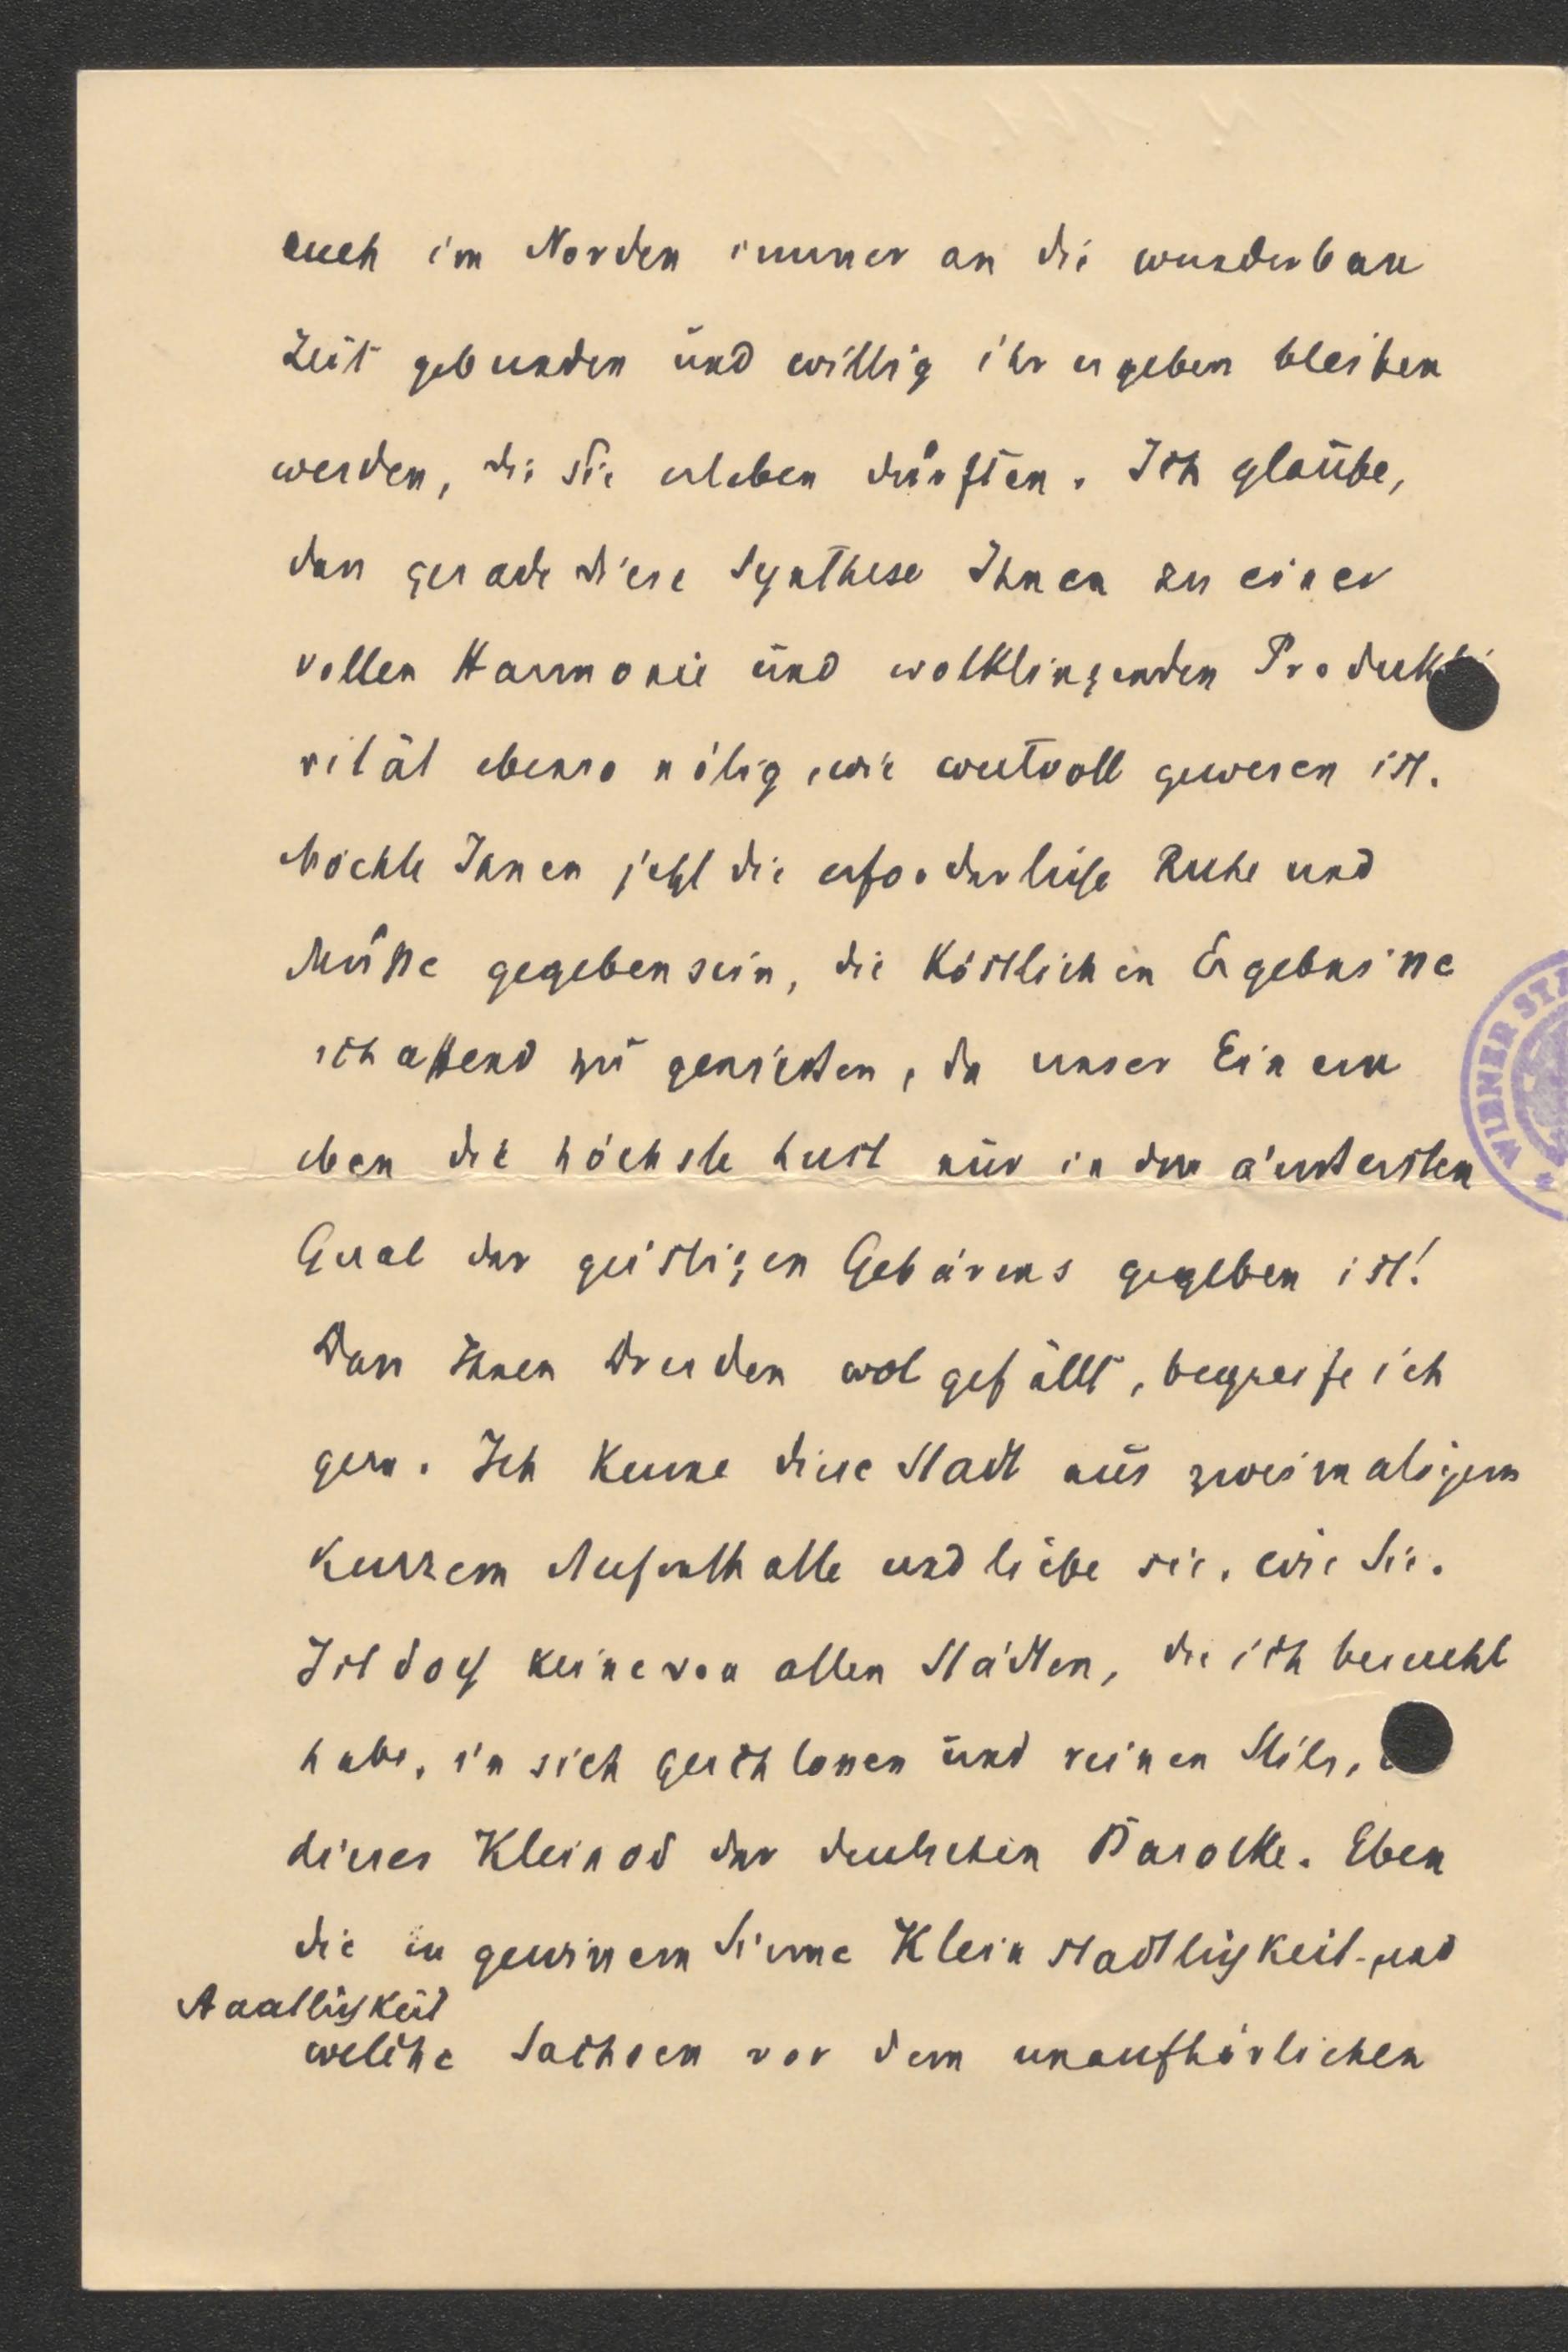 auch im Norden immer an die wunderbare
Zeit gebunden und willig ihr ergeben bleiben
werden, die Sie erleben durften. Ich glaube,
dass gerade diese Synthese Ihnen zu einer
vollen Harmonie und wolklingenden Produkti
vität ebenso nötig, wie wertvoll gewesen ist.
Möchte Ihnen jetzt die erforderliche Ruhe und
Musse gegeben sein, die köstlichen Ergebnisse
schaffend zu geniessen, da unser Einem
eben die höchste Lust nur in der äussersten
Qual des geistigen Gebärens gegeben ist!
Dass Ihnen Dresden wol gefällt, begreife ich
gern. Ich kenne diese Stadt aus zweimaligem
kurzem Aufenthalte und liebe sie, wie Sie.
Ist doch keine von allen Städten, die ich besucht
habe, in sich geschlossen und reinen Stils,
dieses Kleinod der deutschen Barocke. Eben
die in gewissem Sinne Kleinstadtlichkeit und
Staatlichkeit
welche Sachsen vor dem unaufhörlichen
WIENER STA